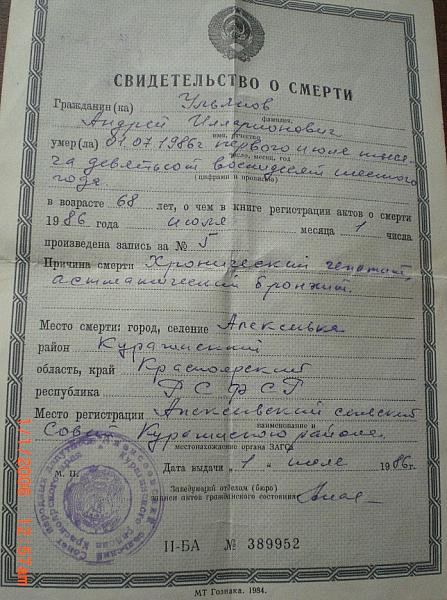 СВИДЕТЕЛЬСТВО О СМЕРТИ
Гражданин(ка) Ульянов
фамилия,
Андрей Илларионович
имя, отчество
умер(ла) 01.07.1986г первого июля тыся-
число, месяц, год
ча девятьсот восемдесят шестого
(цифрами и прописью)
года.
в возрасте 68 лет, о чем в книге регистрации актов о смерти
1986 года июля месяца 1 числа
произведена запись за № 5
Причина смерти Хронический гепатит,
астматический бронхит.
Место смерти: город, селение Алексеевка
район Курагинский
область, край Красноярский
республика РСФСР
Место регистрации Алексеевский сельский
наименование и
Совет Курагинского района
местонахождение органа ЗАГСа
Дата выдачи „1 “ июля 1986г.
М. П.
Заведующий отделом (бюро)
записи актов гражданского состояния
II-БА № 389952
МТ Гознака. 1984.
1/1/2006 12:57am